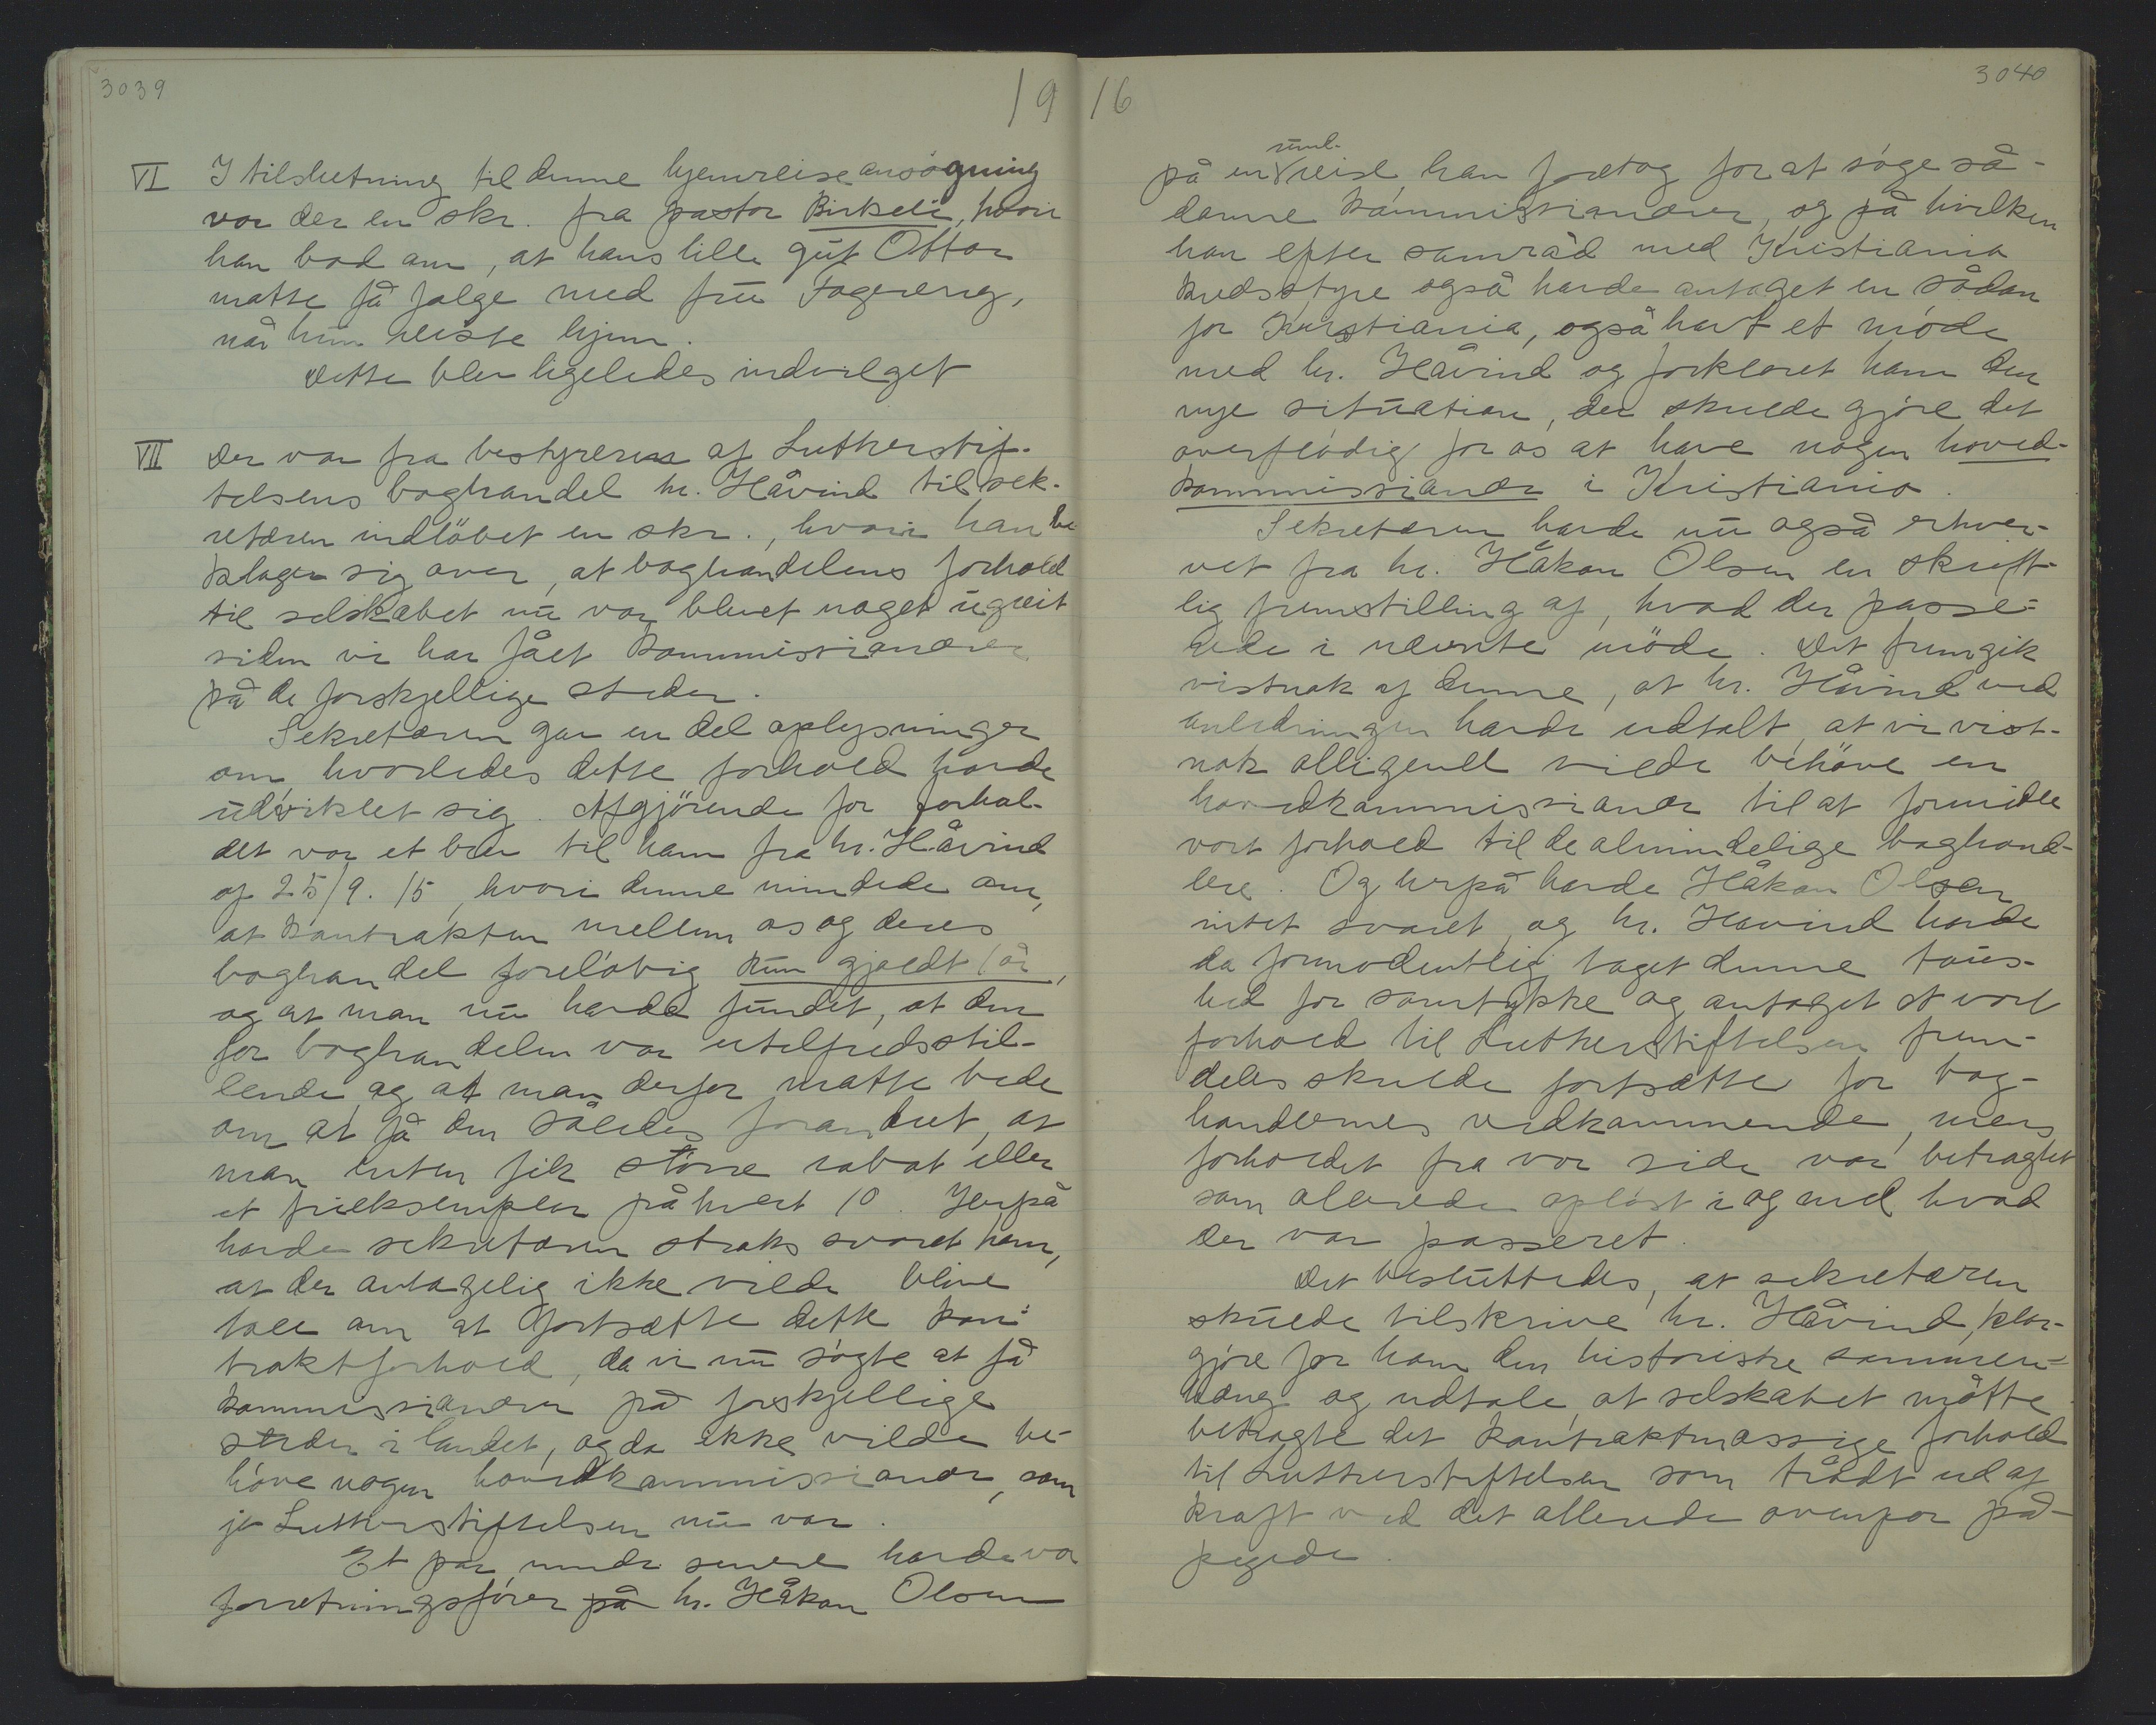 3039
1916
VI I tilslutning til denne hjemreiseansøgning
var der en skr. fra pastor Birkeli, hvori
han bad om, at hans lille gut Ottar
matte få følge med fru Fagereng,
når hun reiste hjem.
Dette blev ligeledes indvilget
VII Der var fra bestyreren af Lutherstif-
telsens boghandel hr. Håvind til sek-
retæren indløbet en skr., hvori han be
klager sig over, at boghandelens forhold
til selskabet nu var blevet noget ugreit
siden vi har fået kommissionærer
på de forskjellige steder.
Sekretæren gav en del oplysninger
om hvorledes dette forhold havde
udviklet sig. Afgjørende for forhol-
det var et brev til ham fra hr. Håvind
af 25/9. 15, hvori denne mindede om,
at kontrakten mellem os og deres
boghandel foreløbig kun gjaldt 1 år,
og at man nu havde fundet, at den
for boghandelen var utilfredsstil-
lende og at man derfor matte bede
om at få den således forandret, at
man enten fik større rabat eller
et frieksemplar på hvert 10. Herpå
havde sekretæren straks svaret ham,
at der antagelig ikke vilde blive
tale om at fortsætte dette kon-
traktforhold, da vi nu søgte at få
kommissionærer på forskjellige
steder i landet, og da ikke vilde be-
høve nogen hovedkommissionær, som
jo Lutherstiftelsen nu var.
Et par mndr senere havde vor
forretningsfører på hr. Håkon Olsen
3040
på en rund-reise, han foretog for at søge så-
danne kommissionærer, og på hvilken
han efter samråd med Kristiania
kredsstyre også havde antaget en sådan
for Kristiania, også havt et møde
med hr. Håvind og forklaret ham den
nye situation, der skulde gjøre det
overflødig for os at have nogen hoved-
kommissionær i Kristiania.
Sekretæren havde nu også erhver-
vet fra hr. Håkon Olsen en skrift-
lig fremstilling af, hvad der passe-
rede i nævnte møde. Det fremgik
vistnok af denne, at hr. Håvind ved
anledningen havde udtalt, at vi vist-
nok alligevel vilde behøve en
hovedkommissionær til at formidle
vort forhold til de almindelige boghand-
lere. Og herpå havde Håkon Olsen
intet svaret, og hr. Havind havde
da formodentlig taget denne taus-
hed for samtykke og antaget at vort
forhold til Lutherstiftelsen frem-
deles skulde fortsætte for bog-
handlernes vedkommende, mens
forholdet fra vor side var betragtet
som allerede opløst i og med hvad
der var passeret.
Det besluttedes, at sekretæren
skulde tilskrive hr. Håvind, klar-
gjøre for ham den historiske sammen-
hæng og udtale, at selskabet måtte
betragte det kontraktmæssige forhold
til Lutherstiftelsen som trådt ud af
kraft ved det allerede ovenfor på-
pegede.